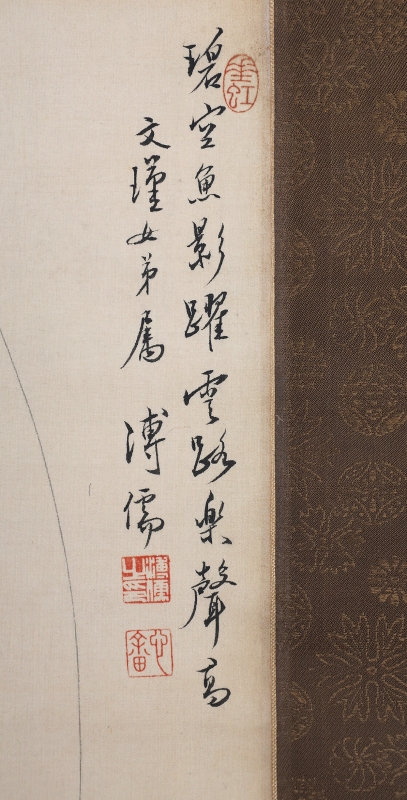 碧空魚影躍雲路楽聲高
文瑾女弟屬 溥儒
溥儒之印
心畬